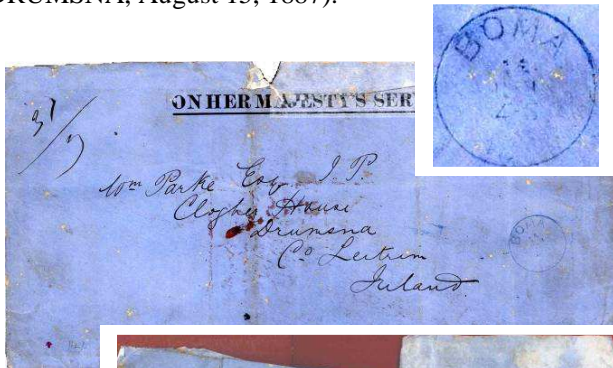 DRUMSNA, August 15, 1887).
BOMA
ON HER MAJESTY'S SER
31/7
Wm Parke Esq J. P.
Clogher House
Drumsna
Co Leitrim
Ireland
BO